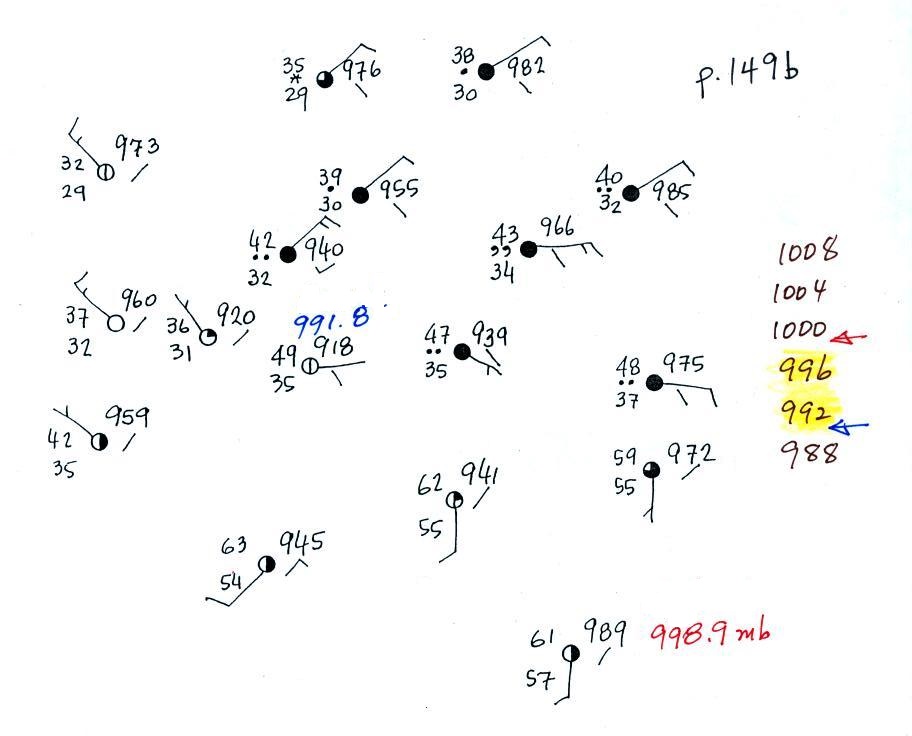 p.149b
35
976
*
29
38
982
30
973
32
29
39
955
30
40
985
32
42
940
32
43
966
34
1008
1004
1000
996
992
988
37
960
32
36
920
31
991.8
49
918
35
47
939
35
48
975
37
42
959
35
59
972
55
62
941
55
63
945
54
61
989
998.9 mb
57